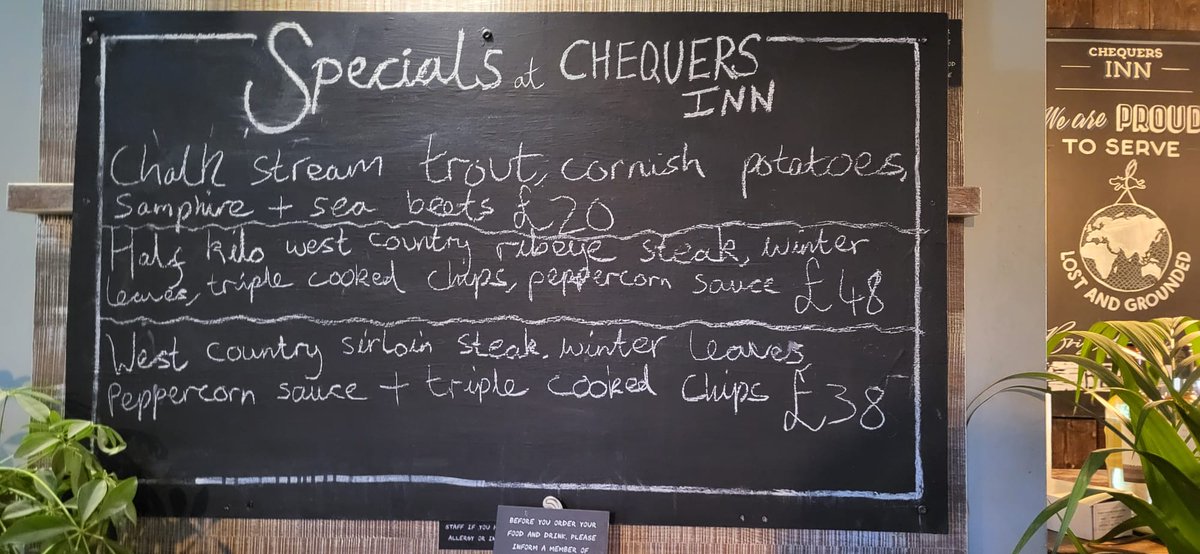 Specials at CHEQUERS
INN
Chalk stream trout, cornish potatoes,
Samphire + sea beets £20
Half kilo west country ribeye steak, winter
leaves, triple cooked chips, peppercorn sauce £48
West country sirloin steak, winter leaves,
Peppercorn sauce + triple cooked chips £38
STAFF IF YOU H
ALLERGY OR IN
BEFORE YOU ORDER YOUR
FOOD AND DRINK, PLEASE
INFORM A MEMBER OF
CHEQUERS
INN
We are PROUD
TO SERVE
LOST AND GROUNDED